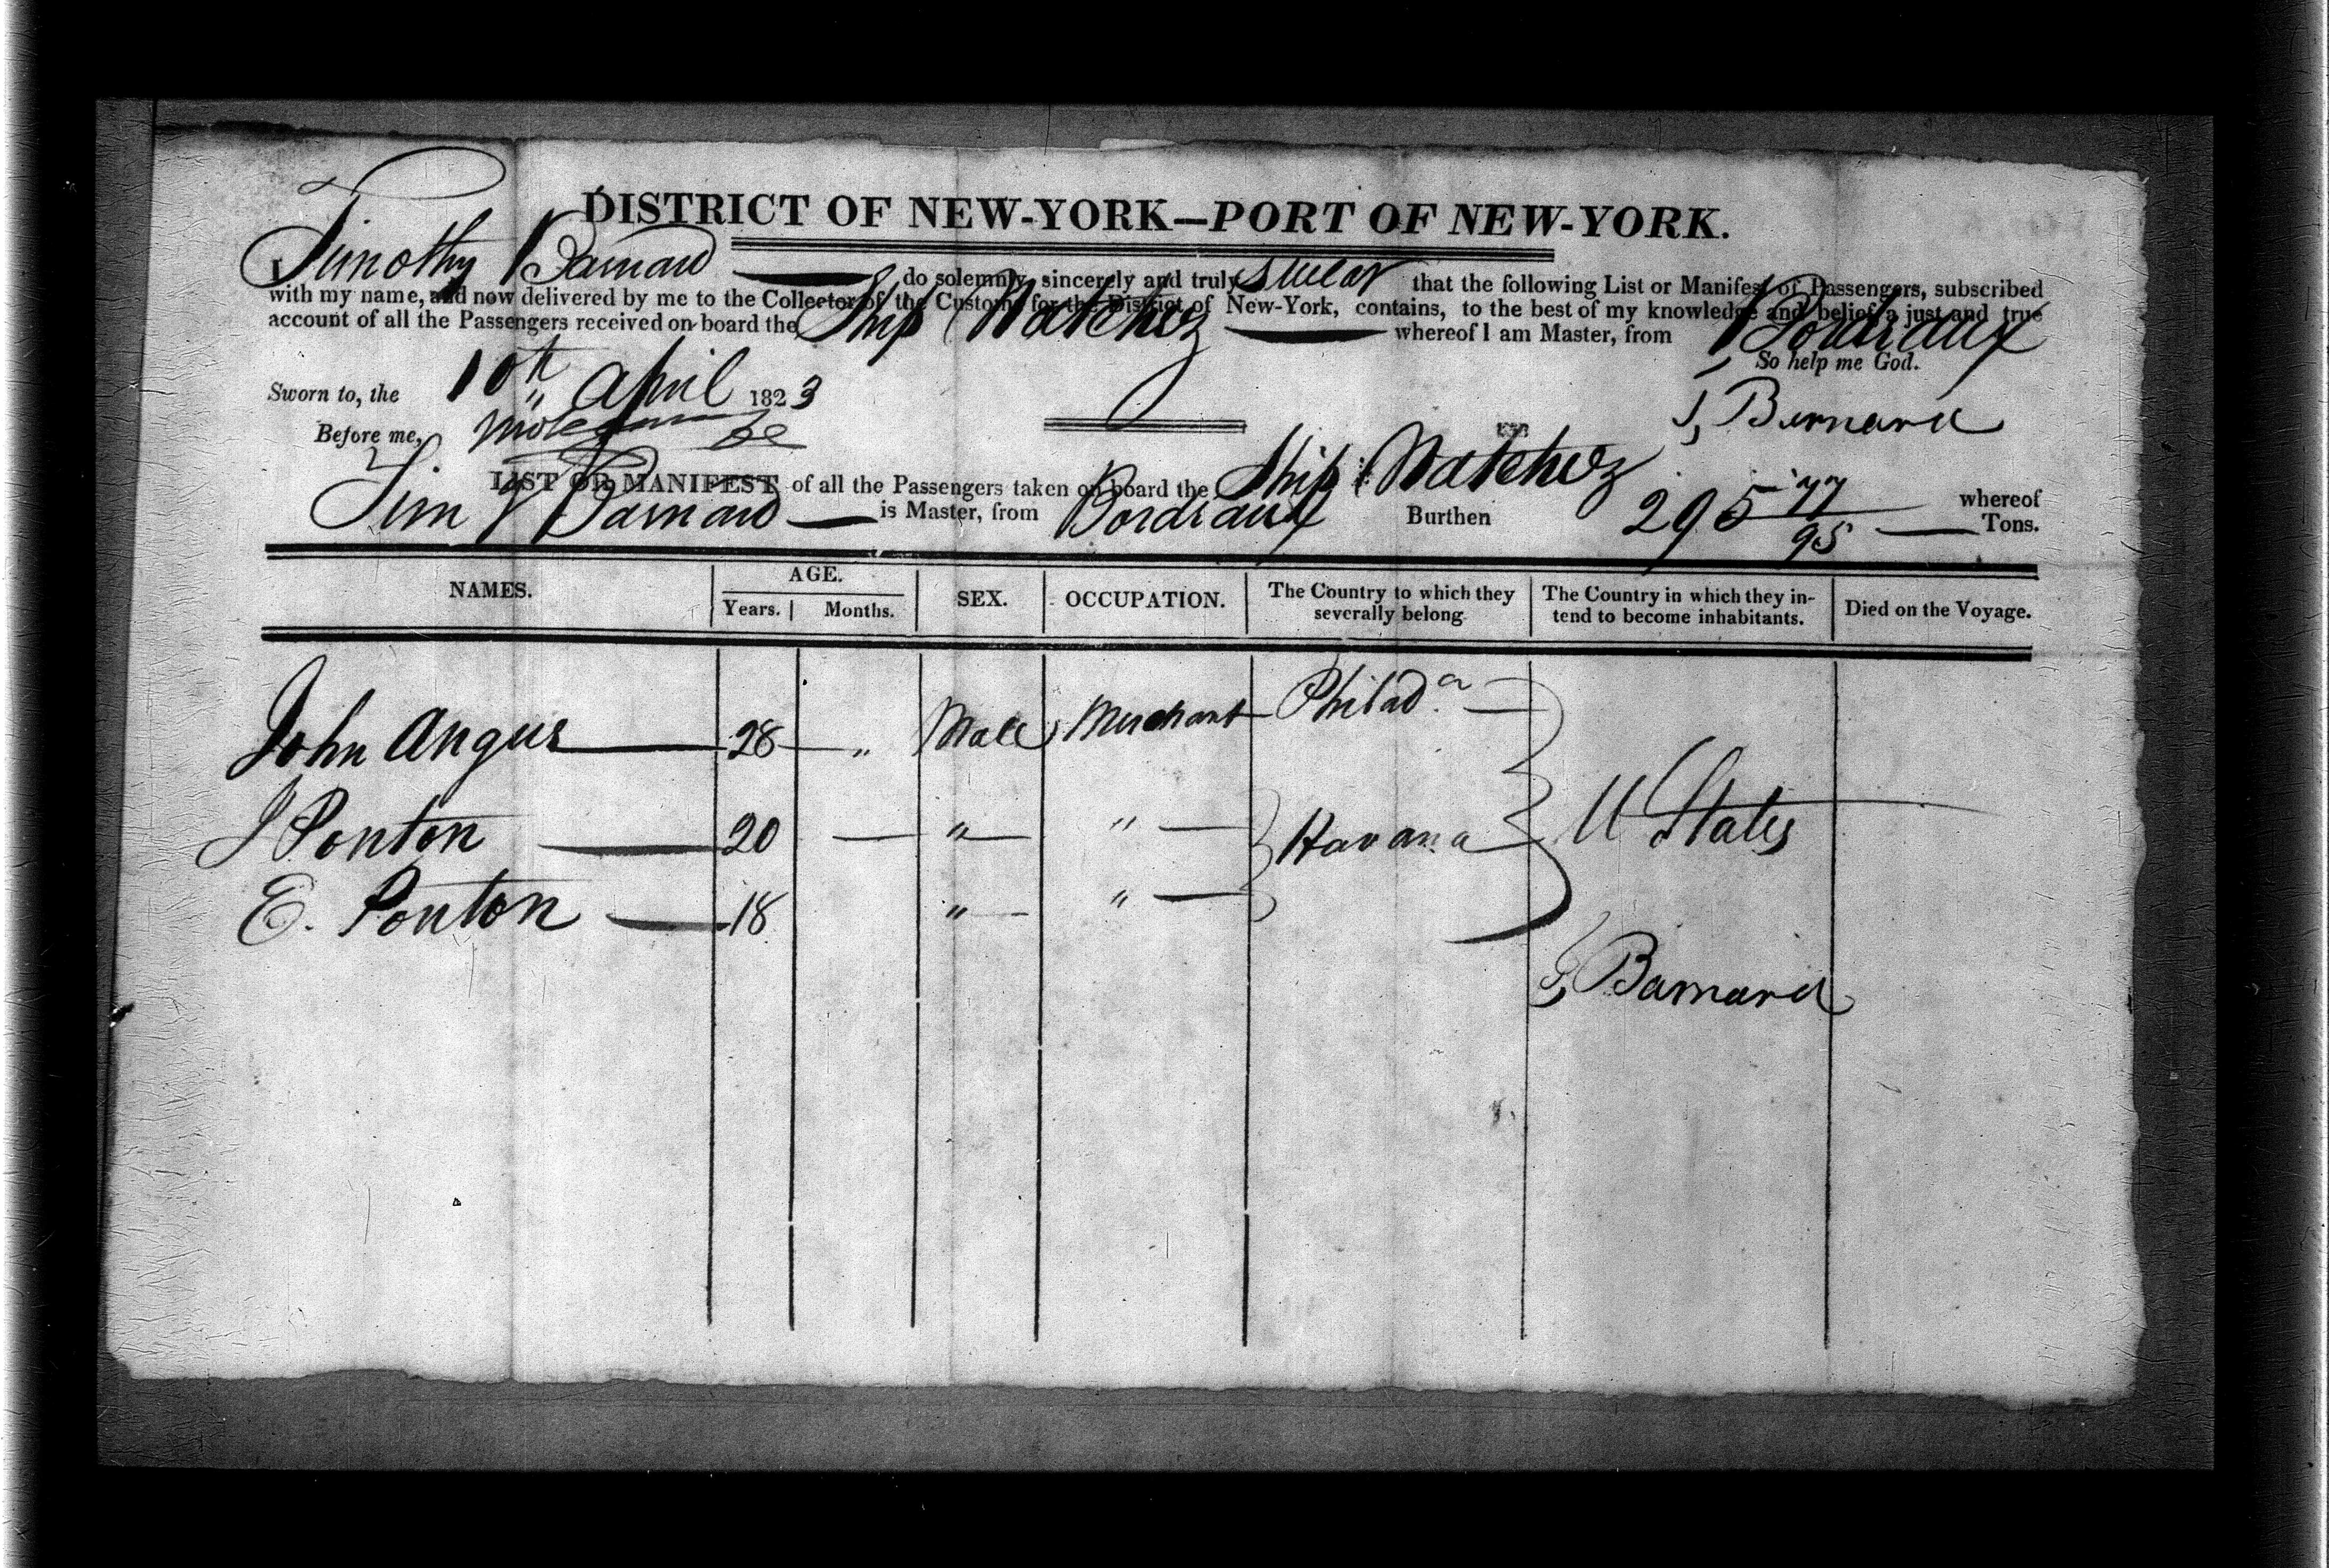 DISTRICT OF NEW-YORK—PORT OF NEW-YORK.
I Timothy Barnard do solemnly, sincerely and truly swear that the following List or Manifest of Passengers, subscribed
with my name, and now delivered by me to the Collector of the Customs for the District of New-York, contains, to the best of my knowledge and belief, a just and true
account of all the Passengers received on board the Ship Natchez whereof I am Master, from Bordeaux
So help me God.
Sworn to, the 10th April 1823
T, Barnard
Before me,
LIST OR MANIFEST of all the Passengers taken on board the Ship Natchez whereof
Tim Barnard is Master, from Bordeaux Burthen 295 77/95 Tons.
NAMES. AGE. SEX. OCCUPATION. The Country to which they severally belong. The Country in which they intend to become inhabitants. Died on the Voyage.
Years. Months.
John Angus 28 " Male Merchant Philada
J Ponton 20 " " Havana U States
E. Ponton 18 " "
T, Barnard